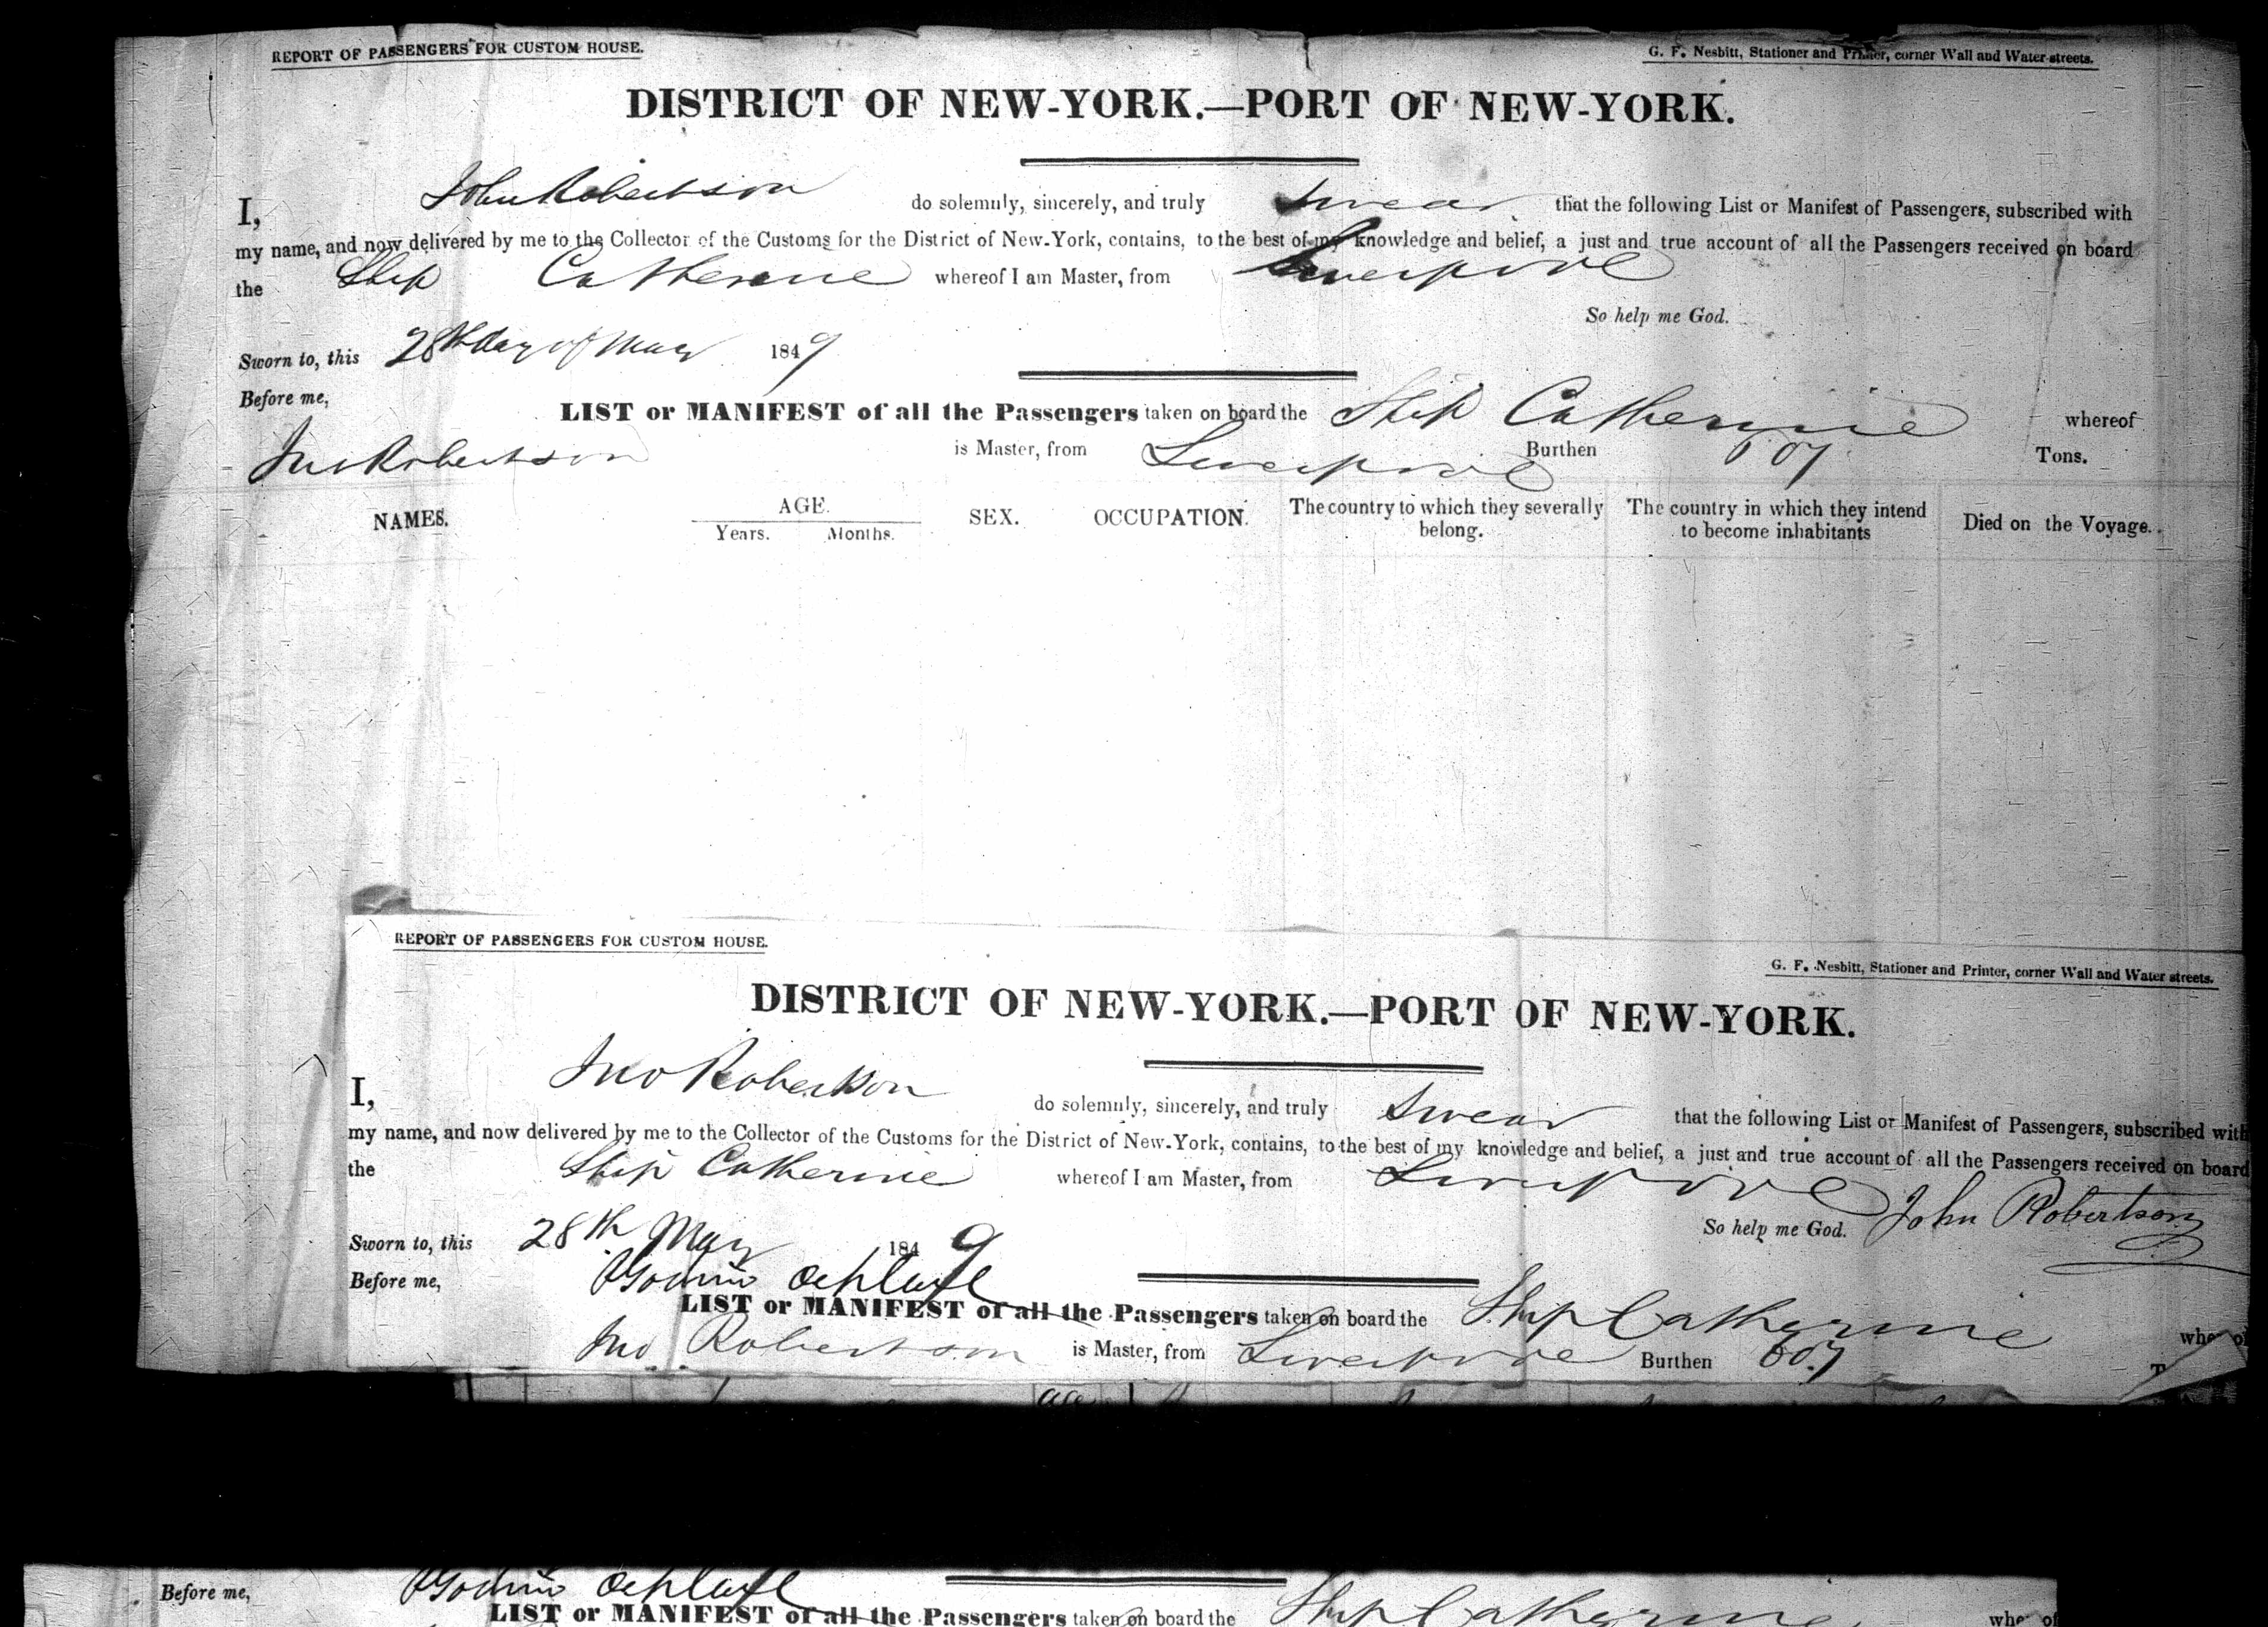 REPORT OF PASSENGERS FOR CUSTOM HOUSE.
G. F. Nesbitt, Stationer and Printer, corner Wall and Water streets.
DISTRICT OF NEW-YORK.—PORT OF NEW-YORK.
I, John Robertson do solemnly, sincerely, and truly swear that the following List or Manifest of Passengers, subscribed with
my name, and now delivered by me to the Collector of the Customs for the District of New-York, contains, to the best of my knowledge and belief, a just and true account of all the Passengers received on board
the Ship Catherine whereof I am Master, from Liverpool
So help me God.
Sworn to, this 28th day of May 1849
Before me,
LIST or MANIFEST of all the Passengers taken on board the Ship Catherine whereof
Jno Robertson is Master, from Liverpool Burthen 607 Tons.
NAMES. AGE. SEX. OCCUPATION. The country to which they severally belong. The country in which they intend to become inhabitants Died on the Voyage.
Years. Months.
REPORT OF PASSENGERS FOR CUSTOM HOUSE.
G. F. Nesbitt, Stationer and Printer, corner Wall and Water streets.
DISTRICT OF NEW-YORK.—PORT OF NEW-YORK.
I, Jno Robertson do solemnly, sincerely, and truly swear that the following List or Manifest of Passengers, subscribed with
my name, and now delivered by me to the Collector of the Customs for the District of New-York, contains, to the best of my knowledge and belief, a just and true account of all the Passengers received on board
the Ship Catherine whereof I am Master, from Liverpool
So help me God. John Robertson
Sworn to, this 28th May 1849
Before me,
LIST or MANIFEST of all the Passengers taken on board the Ship Catherine whereof
Jno Robertson is Master, from Liverpool Burthen 607 T
age
Before me,
LIST or MANIFEST of all the Passengers taken on board the Ship Catherine whereof